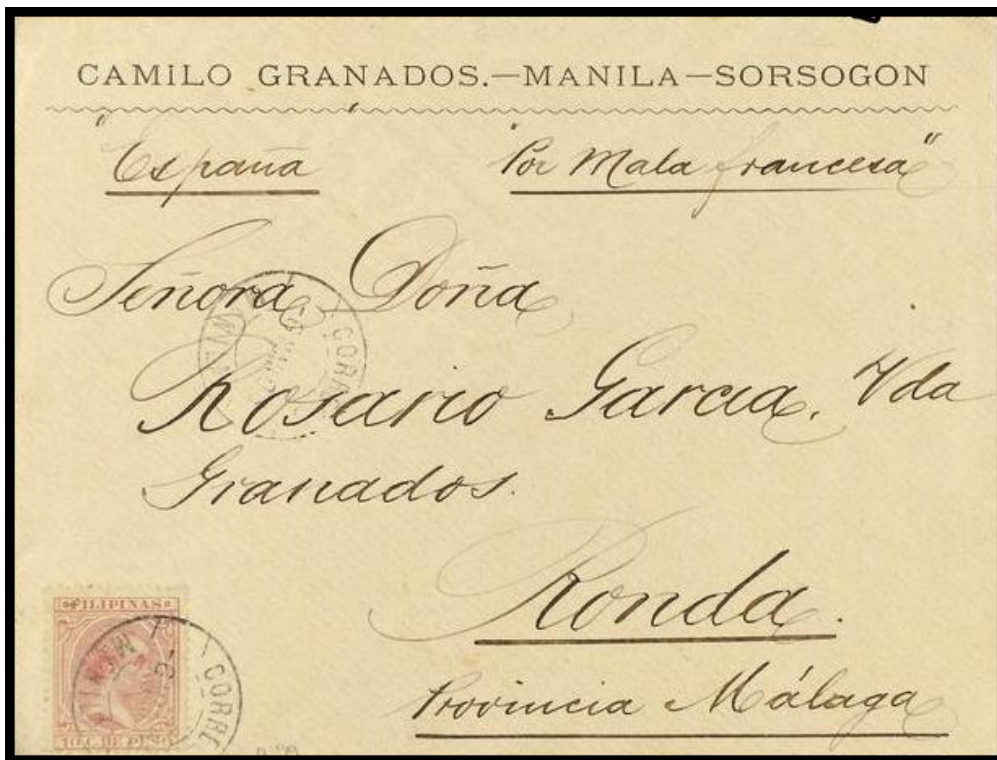 CAMILO GRANADOS.—MANILA—SORSOGON
"España" "Por Mala francesa"
Señora Doña
CORRE
Rosario Garcia, Vda
Granados.
Ronda.
Provincia Málaga
FILIPINAS
MANILA CORRE
10 C. DE PESO